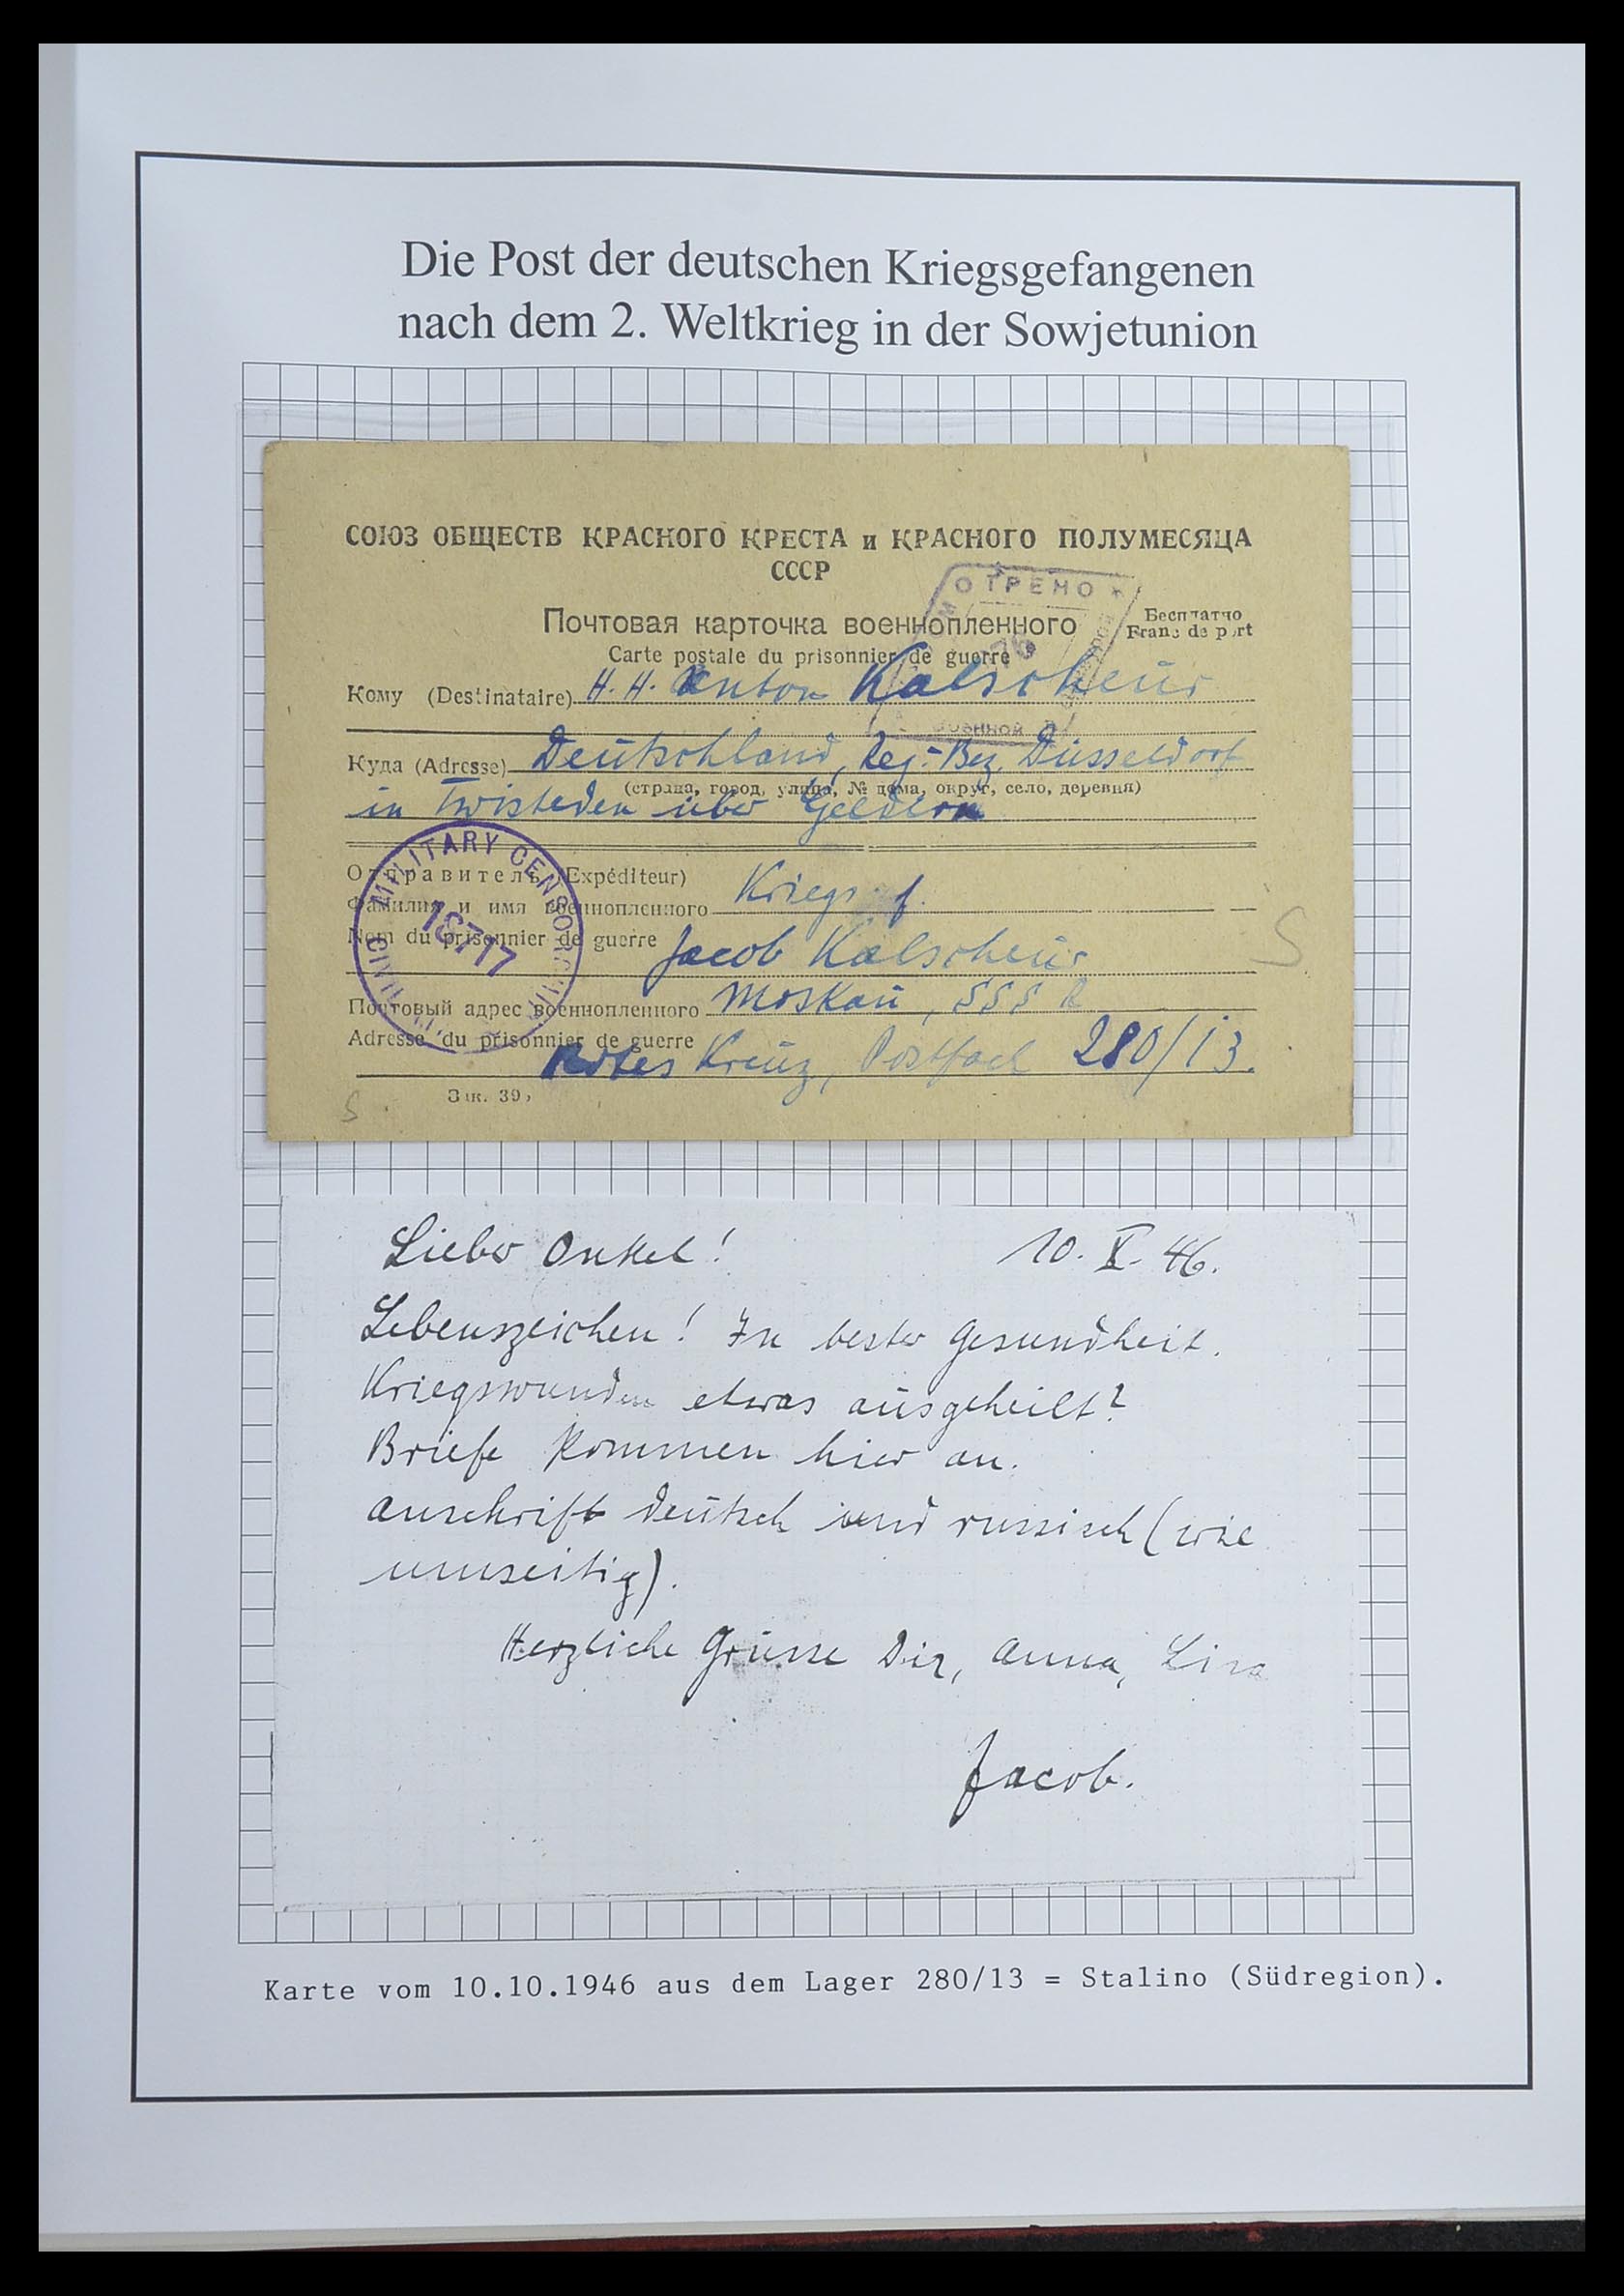 Die Post der deutschen Kriegsgefangenen
nach dem 2. Weltkrieg in der Sowjetunion
СОЮЗ ОБЩЕСТВ КРАСНОГО КРЕСТА и КРАСНОГО ПОЛУМЕСЯЦА
СССР
ОТРЕНО
Почтовая карточка военнопленного
Бесплатно
Franc de port
Carte postale du prisonnier de guerre
Кому (Destinataire) H. H. Anton Kalscheur
военной
Куда (Adresse) Deutschland, Reg.-Bez. Düsseldorf
(страна, город, улица, № дома, округ, село, деревня)
in Twisteden über Geldern
MILITARY CENSOR
CIVIL
16717
Отправитель (Expéditeur)
Фамилия и имя военнопленного Kriegs. f.
Nom du prisonnier de guerre Jacob Kalscheur
S
Почтовый адрес военнопленного Moskau, SSSR
Adresse du prisonnier de guerre
Rotes Kreuz, Postfach 280/13.
S
Зак. 39
Lieber Onkel! 10. X. 46.
Lebenszeichen! In bester Gesundheit.
Kriegswunden etwas ausgeheilt?
Briefe kommen hier an.
Anschrift deutsch und russisch (wie
umseitig).
Herzliche Grüsse Dir, Anna, Lisa
Jacob.
Karte vom 10.10.1946 aus dem Lager 280/13 = Stalino (Südregion).